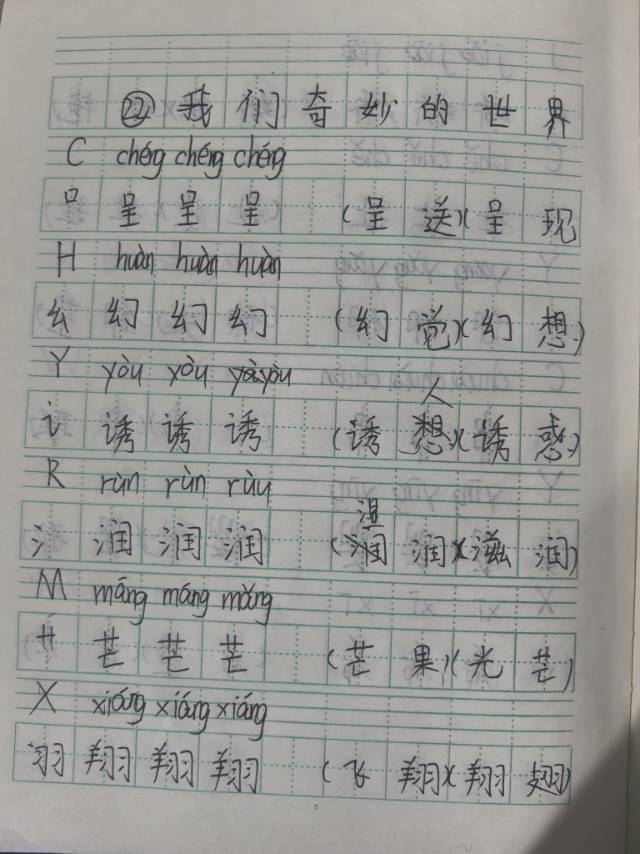 ㉒ 我们奇妙的世界
C chéng chéng chéng
口 呈 呈 呈 (呈送)(呈现
H huàn huàn huàn
幺 幻 幻 幻 (幻觉)(幻想)
Y yòu yòu yòu
人
讠 诱 诱 诱 (诱想)(诱惑)
R rùn rùn rùn
湿
氵 润 润 润 (润润)(滋润)
M máng máng máng
艹 芒 芒 芒 (芒果)(光芒)
X xiáng xiáng xiáng
羽 翔 翔 翔 (飞翔)(翔翅)